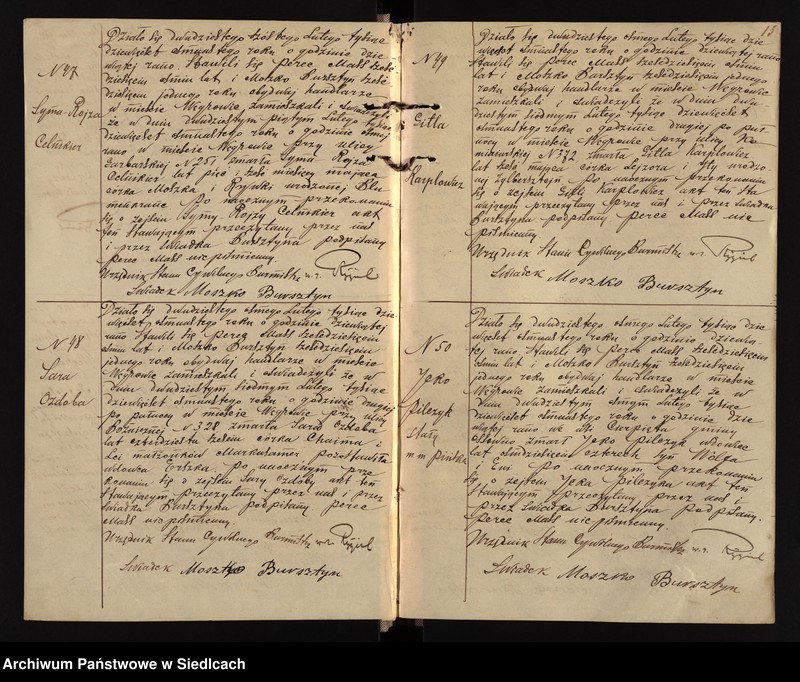 N 47
Syma-Rojza
Celnikier
Działo się dwudziestego szóstego Lutego tysiąc
dziewięćset ósmnastego roku o godzinie dzie
wiątej rano. Stawili się Perec Małs sześć
dziesięciu ośmiu lat i Moszko Bursztyn sześć
dziesięciu jednego roku obydwaj handlarze
w mieście Węgrowie zamieszkali i świadczyli
że w dniu dwudziestym piątym Lutego tysiąc
dziewięćset ósmnastego roku o godzinie ósmej
rano w mieście Węgrowie przy ulicy
Garbarskiej N 251 zmarła Syma Rojza
Celnikier lat pięć i sześć miesięcy mająca
córka Moszka i Rywki urodzonej
Po naocznym przekonaniu
się o zejściu Symy Rojzy Celnikier akt
ten Stawającym przeczytany przez nas
i przez świadka Bursztyna podpisany
Perec Małs nie piśmienny.
Urzędnik Stanu Cywilnego Burmistrz
Świadek Moszko Bursztyn
N 48
Sara
Ozdoba
Działo się dwudziestego ósmego Lutego tysiąc dzie
więćset ósmnastego roku o godzinie dziewiątej
rano Stawili się Perec Małs sześćdziesięciu
ośmiu lat i Moszko Bursztyn sześćdziesięciu
jednego roku obydwaj handlarze w mieście
Węgrowie zamieszkali i świadczyli że w
dniu dwudziestym siódmym Lutego tysiąc
dziewięćset ósmnastego roku o godzinie drugiej
po północy w mieście Węgrowie przy ulicy
Bóżnicznej N 328 zmarła Sara Ozdoba
lat czterdzieści sześć córka Chaima i
Lei małżonków Markusamer pozostawiła
wdowca Erszka. Po naocznym prze
konaniu się o zejściu Sary Ozdoby akt ten
Stawającym przeczytany przez nas i przez
świadka Bursztyna podpisany Perec
Małs nie piśmienny.
Urzędnik Stanu Cywilnego Burmistrz
Świadek Moszko Bursztyn
15
N 49
Gitla
Karplowicz
Działo się dwudziestego ósmego Lutego tysiąc dzie
więćset ósmnastego roku o godzinie dziewiątej rano
Stawili się Perec Małs sześćdziesięciu ośmiu
lat i Moszko Bursztyn sześćdziesięciu jednego
roku obydwaj handlarze w mieście Węgrowie
zamieszkali i świadczyli że w dniu dwu
dziestym siódmym Lutego tysiąc dziewięćset
ósmnastego roku o godzinie drugiej po pół
nocy w mieście Węgrowie przy ulicy
N 372 zmarła Gitla Karplowicz
lat sześć mająca córka Lejzora i Ity urodzo
nej Zylbersztejn Po naocznym przekonaniu
się o zejściu Gitli Karplowicz akt ten Sta
wającym przeczytany przez nas i przez świadka
Bursztyna podpisany Perec Małs nie
piśmienny
Urzędnik Stanu Cywilnego Burmistrz
Świadek Moszko Bursztyn
N 50
Jcko
Pilczyk
stały
m. m Pińska
Działo się dwudziestego ósmego Lutego tysiąc dzie
więćset ósmnastego roku o godzinie dziewią
tej rano Stawili się Perec Małs sześćdziesięciu
ośmiu lat i Moszko Bursztyn sześćdziesięciu
jednego roku obydwaj handlarze w mieście
Węgrowie zamieszkali i świadczyli że w
dniu dwudziestym ósmym Lutego tysiąc
dziewięćset ósmnastego roku o godzinie dzie
wiątej rano we wsi gminy
zmarł Jcko Pilczyk wdowiec
lat ośmdziesiąt czterech syn Wólpa
i Eni Po naocznym przekonaniu
się o zejściu Jcka Pilczyka akt ten
Stawającym przeczytany przez nas i
przez świadka Bursztyna podpisany.
Perec Małs nie piśmienny.
Urzędnik Stanu Cywilnego Burmistrz
Świadek Moszko Bursztyn
Archiwum Państwowe w Siedlcach